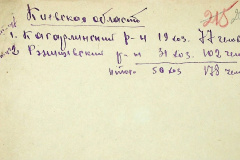 Киевская область 215
1. Кагарлинский р-н 19 хоз. 77 челов
2. Ржищевский р-н 31 хоз. 102 чел
Итого- 50 хоз 178 чел